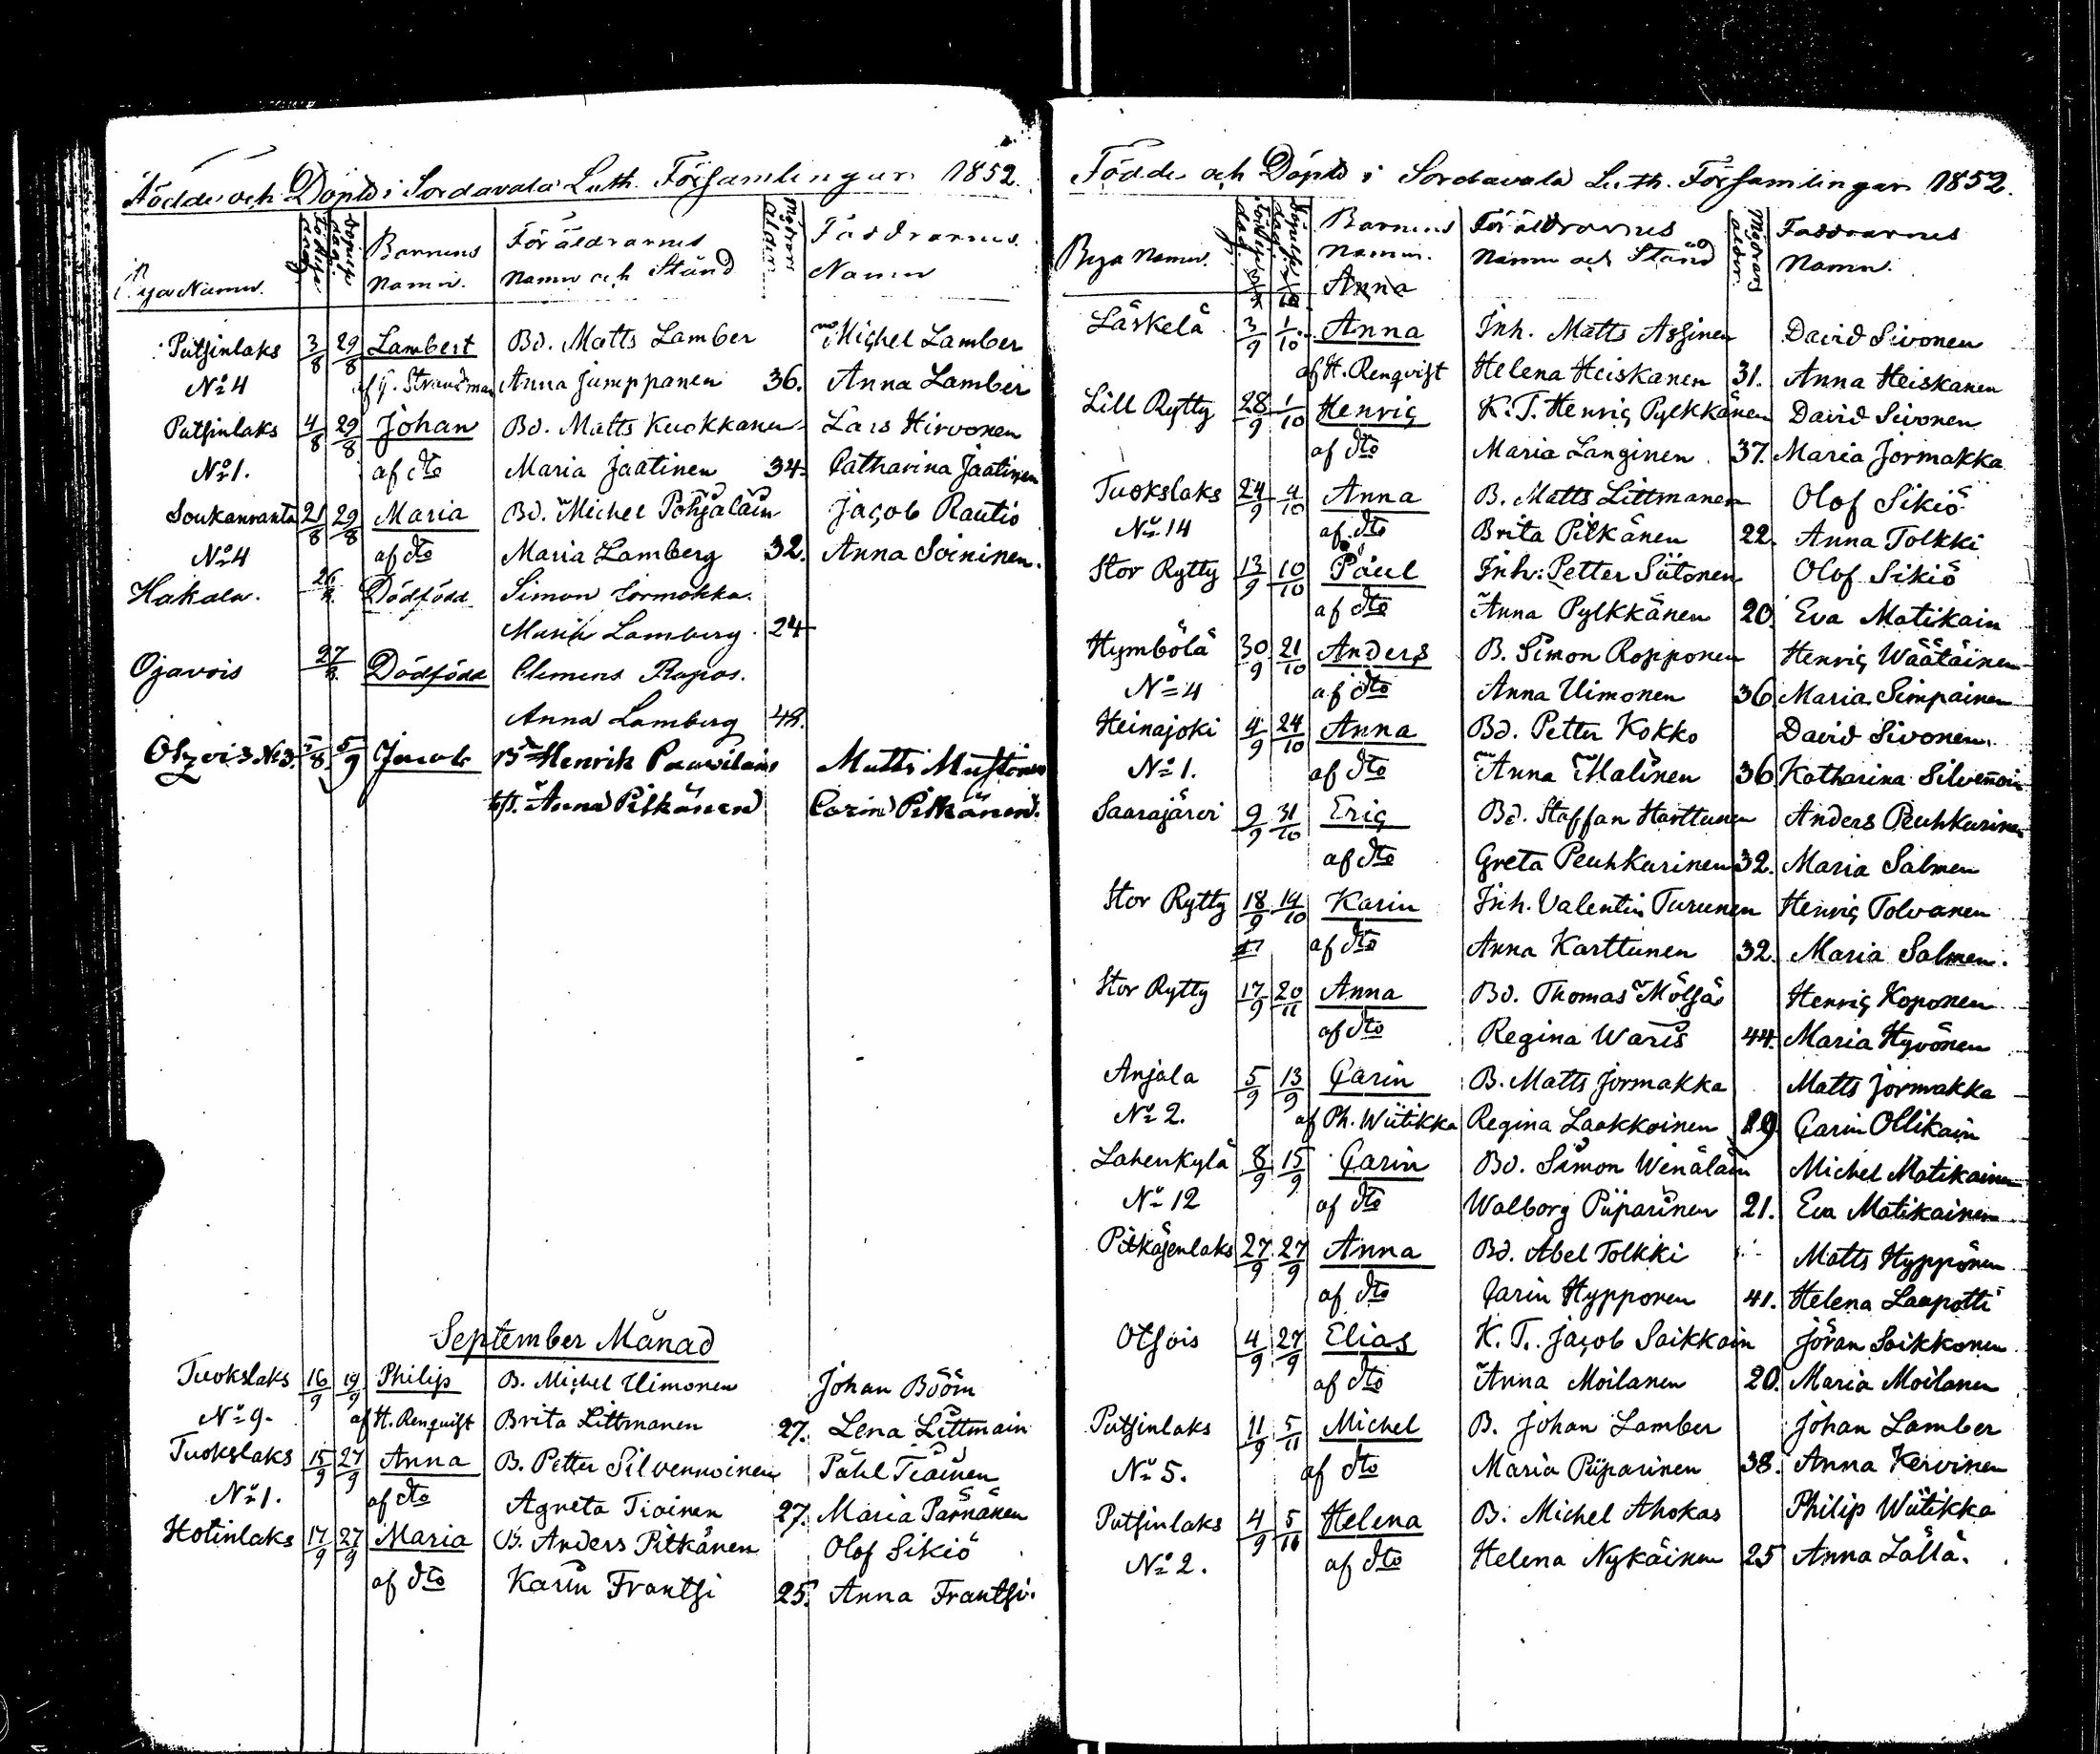 Födde och Döpte i Sordavala Luth. Församlingar 1852.
Bya Namn. Födelse dag. Döpelse dag. Barnens Namn. Föräldrarnes Namn och Stånd Modrens ålder. Faddrarnes Namn
Putsinlaks 3/8 29/8 Lambert Bd. Matts Lamber Michel Lamber
No 4 af G. Strandman Anna Jumppanen 36. Anna Lamber
Putsinlaks 4/8 29/8 Johan Bd. Matts Kuokkanen Lars Hirvonen
No 1. af dto Maria Jaatinen 34. Catharina Jaatinen
Soukanranta 21/8 29/8 Maria Bd. Michel Pohjalain Jacob Rautio
No 4 af dto Maria Lamberg 32. Anna Soininen.
Hakala. 26/8. Dödfödd Simon Jormakka.
Maria Lamberg. 24
Ojavois 27/8. Dödfödd Clemens Repos.
Anna Lamberg 42.
Otsois No 3. /8 5/9 Jacob Bd Henrik Paavilain Matts Mustonen
Anna Pitkänen Carin Pitkänen.
September Månad
Tuokslaks 16/9 19/9 Philip B. Michel Uimonen Johan Bööm
No 9. af H. Renqvist Brita Littmanen 27. Lena Littmain
Tuokslaks 15/9 27/9 Anna B. Petter Silvennoinen Påhl Tiainen
No 1. af dto Agneta Tiainen 27. Maria Parnänen
Hotinlaks 17/9 27/9 Maria B. Anders Pitkänen Olof Sikiö
af dto Karin Frantsi 25. Anna Frantsi.
Födde och Döpte i Sordavala Luth. Församlingar 1852.
Bya Namn. Födelse dag. Döpelse dag. Barnens Namn. Föräldrarnes Namn och Stånd Modrens ålder. Faddrarnes Namn.
Anna
Läskelä 3/9 1/10 Anna Inh. Matts Assinen David Sivonen
af H. Renqvist Helena Heiskanen 31. Anna Heiskanen
Lill Rytty 28/9 1/10 Henric K. T. Henric Pylkkänen David Sivonen
af dto Maria Langinen 37. Maria Jormakka
Tuokslaks 24/9 4/10 Anna B. Matts Littmanen Olof Sikiö
No 14 af dto Brita Pitkänen 22. Anna Tolkki
Stor Rytty 13/9 10/10 Paul Inh: Petter Sütonen Olof Sikiö
af dto Anna Pylkkänen 20. Eva Matikain
Hymbölä 30/9 21/10 Anders B. Simon Ropponen Henric Wäätäinen
No 4 af dto Anna Uimonen 36 Maria Simpainen
Heinajoki 4/9 24/10 Anna Bd. Petter Kokko David Sivonen.
No 1. af dto Anna Malinen 36 Katharina Silvennoin
Saarajärvi 9/9 31/10 Eric Bd. Staffan Harttunen Anders Peuhkurinen
af dto Greta Peuhkurinen 32. Maria Salmen
Stor Rytty 18/9 14/10 Karin Inh. Valentin Turunen Henric Tolvanen
17 af dto Anna Karttunen 32. Maria Salmen.
Stor Rytty 17/9 20/11 Anna Bd. Thomas Mölsä Henric Koponen
af dto Regina Waris 44. Maria Hyvönen
Anjala 5/9 13/9 Carin B. Matts Jormakka Matts Jormakka
No 2. af Ph. Wiitikka Regina Laakkoinen 29 Carin Ollikain
Lahenkylä 8/9 15/9 Carin Bd. Simon Winäläin Michel Matikainen
No 12 af dto Walborg Piiparinen 21. Eva Matikainen
Pitkäjenlaks 27/9 27/9 Anna Bd. Abel Tolkki Matts Hyppönen
af dto Carin Hypponen 41. Helena Laapotti
Otsois 4/9 27/9 Elias K. T. Jacob Saikkain Jöran Saikkonen
af dto Anna Moilanen 20. Maria Moilanen
Putsinlaks 11/9 5/11 Michel B. Johan Lamber Johan Lamber
No 5. af dto Maria Piiparinen 38. Anna Kervinen
Putsinlaks 4/9 5/10 Helena B. Michel Ahokas Philip Wiitikka
No 2. af dto Helena Nykäinen 25 Anna Lällä.